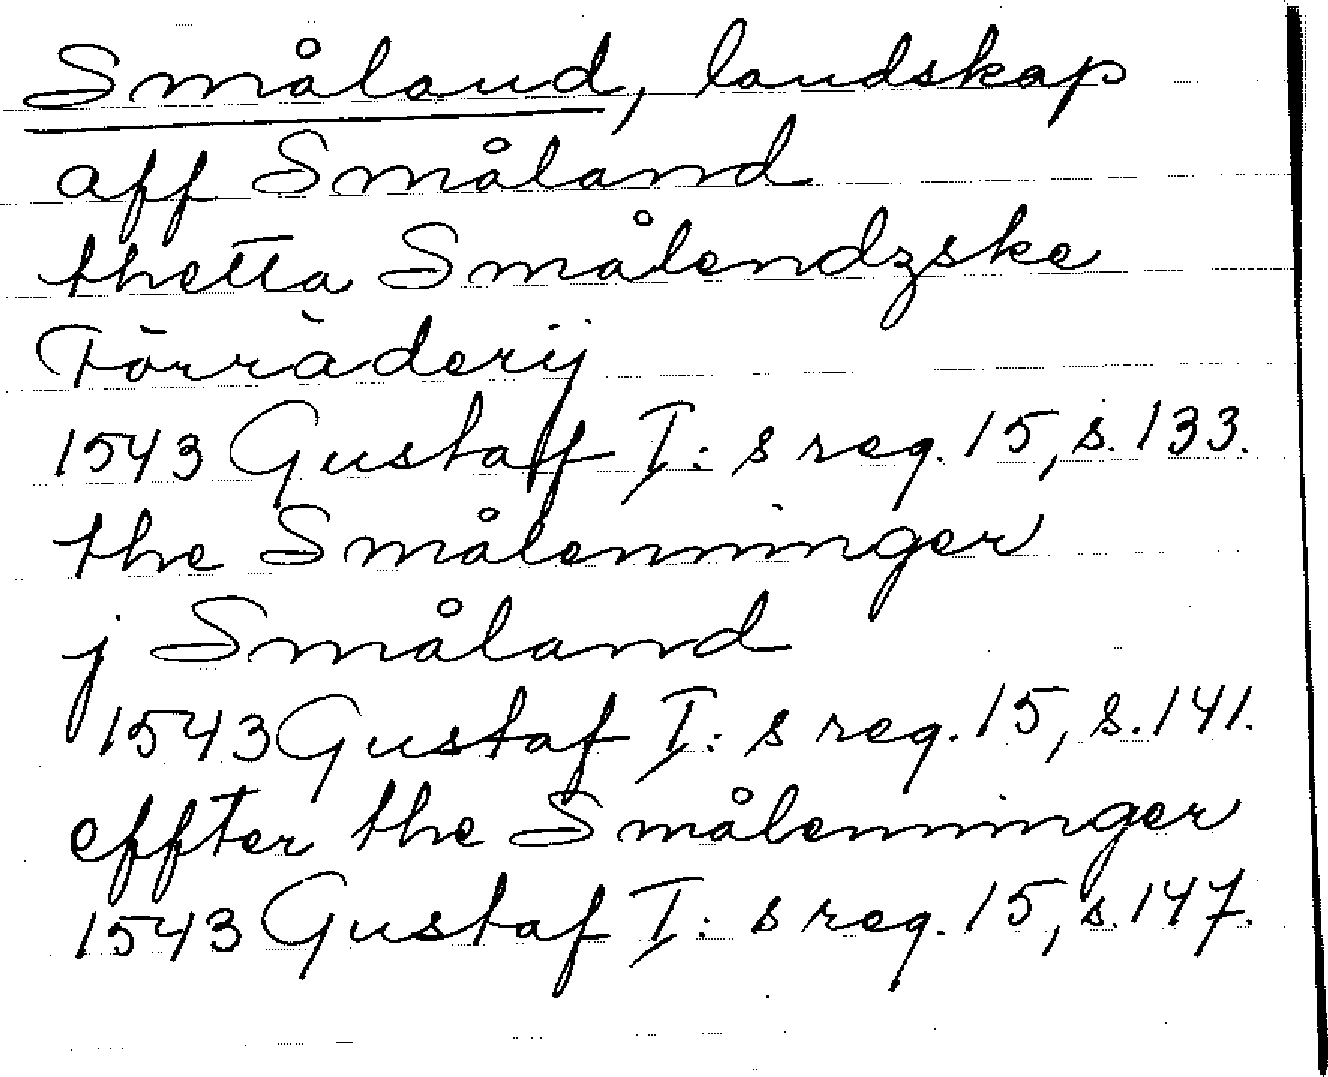 Småland, landskap
aff Småland
thetta Smålendzske
Förräderij
1543 Gustaff I: s reg. 15, s. 133.
the Smålenninger
j Småland
1543 Gustaf I: s reg. 15, s. 141.
effter the Smålenninger
1543 Gustaf I: s reg. 15, s. 147.